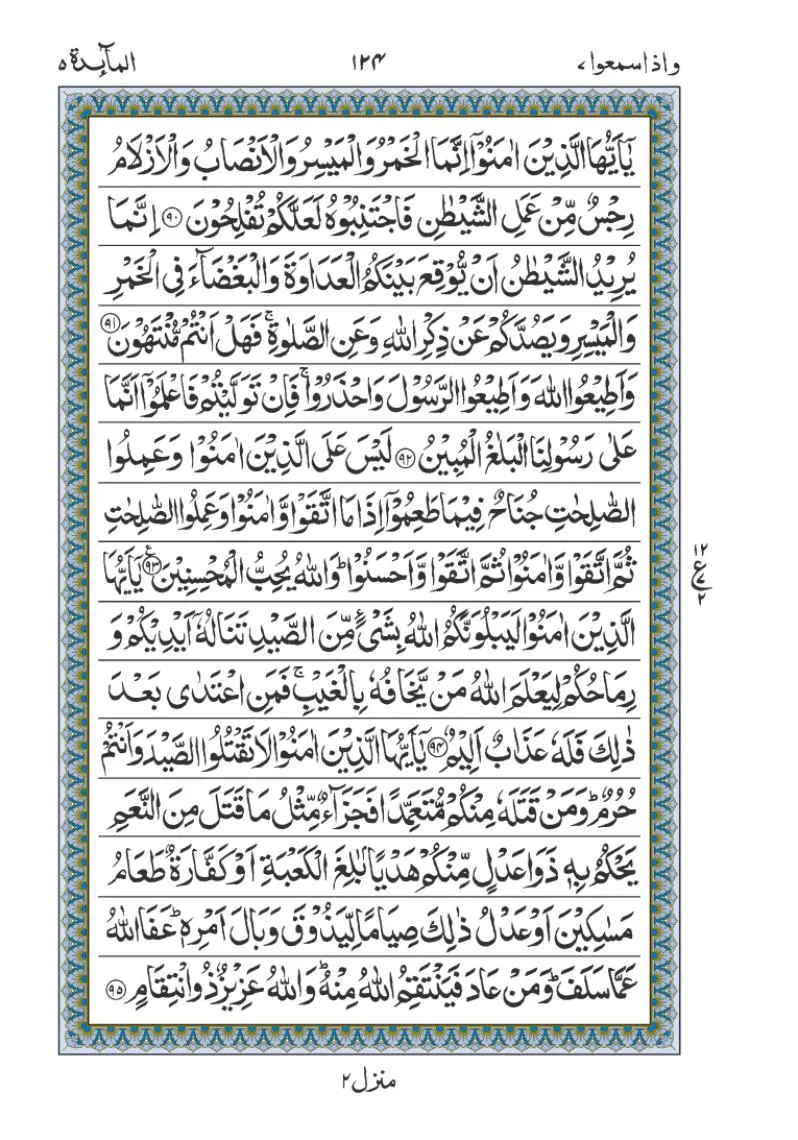 واذاسمعوا ٧
١٢٤
المآىِٕدة ٥
يٰۤاَيُّهَا الَّذِيْنَ اٰمَنُوْۤا اِنَّمَا الْخَمْرُ وَالْمَيْسِرُ وَالْاَنْصَابُ وَالْاَزْلَامُ
رِجْسٌ مِّنْ عَمَلِ الشَّيْطٰنِ فَاجْتَنِبُوْهُ لَعَلَّكُمْ تُفْلِحُوْنَ ﴿٩٠﴾ اِنَّمَا
يُرِيْدُ الشَّيْطٰنُ اَنْ يُّوْقِعَ بَيْنَكُمُ الْعَدَاوَةَ وَالْبَغْضَآءَ فِى الْخَمْرِ
وَالْمَيْسِرِ وَيَصُدَّكُمْ عَنْ ذِكْرِ اللّٰهِ وَعَنِ الصَّلٰوةِ ۚ فَهَلْ اَنْتُمْ مُّنْتَهُوْنَ ﴿٩١﴾
وَاَطِيْعُوا اللّٰهَ وَاَطِيْعُوا الرَّسُوْلَ وَاحْذَرُوْا ۚ فَاِنْ تَوَلَّيْتُمْ فَاعْلَمُوْۤا اَنَّمَا
عَلٰى رَسُوْلِنَا الْبَلٰغُ الْمُبِيْنُ ﴿٩٢﴾ لَيْسَ عَلَى الَّذِيْنَ اٰمَنُوْا وَعَمِلُوا
الصّٰلِحٰتِ جُنَاحٌ فِيْمَا طَعِمُوْۤا اِذَا مَا اتَّقَوْا وَّاٰمَنُوْا وَعَمِلُوا الصّٰلِحٰتِ
ثُمَّ اتَّقَوْا وَّاٰمَنُوْا ثُمَّ اتَّقَوْا وَّاَحْسَنُوْا ؕ وَاللّٰهُ يُحِبُّ الْمُحْسِنِيْنَ ﴿٩٣﴾ ع يٰۤاَيُّهَا
١٢
ع ٧
٢
الَّذِيْنَ اٰمَنُوْا لَيَبْلُوَنَّكُمُ اللّٰهُ بِشَىْءٍ مِّنَ الصَّيْدِ تَنَالُهٗۤ اَيْدِيْكُمْ وَ
رِمَاحُكُمْ لِيَعْلَمَ اللّٰهُ مَنْ يَّخَافُهٗ بِالْغَيْبِ ۚ فَمَنِ اعْتَدٰى بَعْدَ
ذٰلِكَ فَلَهٗ عَذَابٌ اَلِيْمٌ ﴿٩٤﴾ يٰۤاَيُّهَا الَّذِيْنَ اٰمَنُوْا لَا تَقْتُلُوا الصَّيْدَ وَاَنْتُمْ
حُرُمٌ ؕ وَمَنْ قَتَلَهٗ مِنْكُمْ مُّتَعَمِّدًا فَجَزَآءٌ مِّثْلُ مَا قَتَلَ مِنَ النَّعَمِ
يَحْكُمُ بِهٖ ذَوَا عَدْلٍ مِّنْكُمْ هَدْيًاۢ بٰلِغَ الْكَعْبَةِ اَوْ كَفَّارَةٌ طَعَامُ
مَسٰكِيْنَ اَوْ عَدْلُ ذٰلِكَ صِيَامًا لِّيَذُوْقَ وَبَالَ اَمْرِهٖ ؕ عَفَا اللّٰهُ
عَمَّا سَلَفَ ؕ وَمَنْ عَادَ فَيَنْتَقِمُ اللّٰهُ مِنْهُ ؕ وَاللّٰهُ عَزِيْزٌ ذُو انْتِقَامٍ ﴿٩٥﴾
منزل ٢